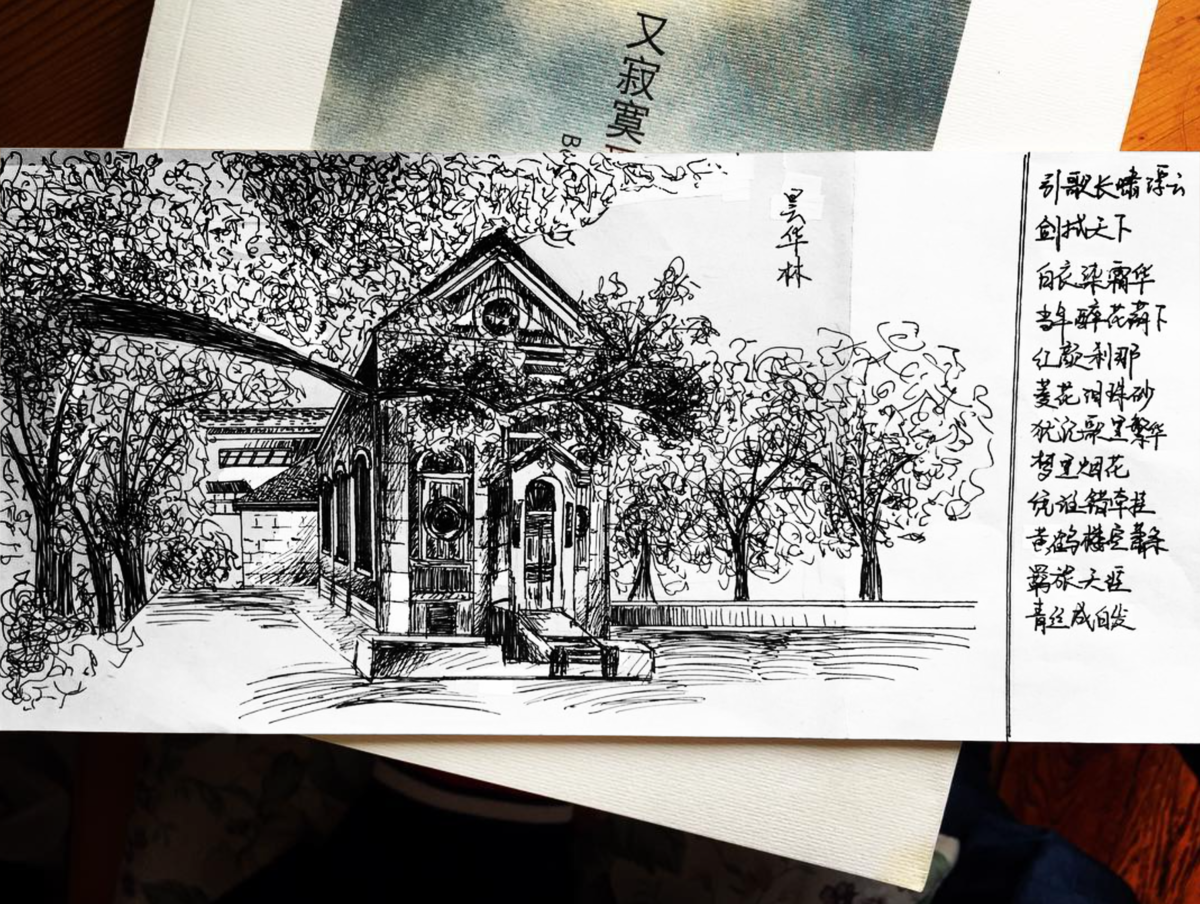 又寂寞
B
昙华林
引歌长啸浮云
剑试天下
白衣染霜华
当年醉花荫下
红颜刹那
菱花泪珠砂
犹沉歌里繁华
梦里烟花
错牵挂
黄鹤楼空萧条
羁旅天涯
青丝成白发